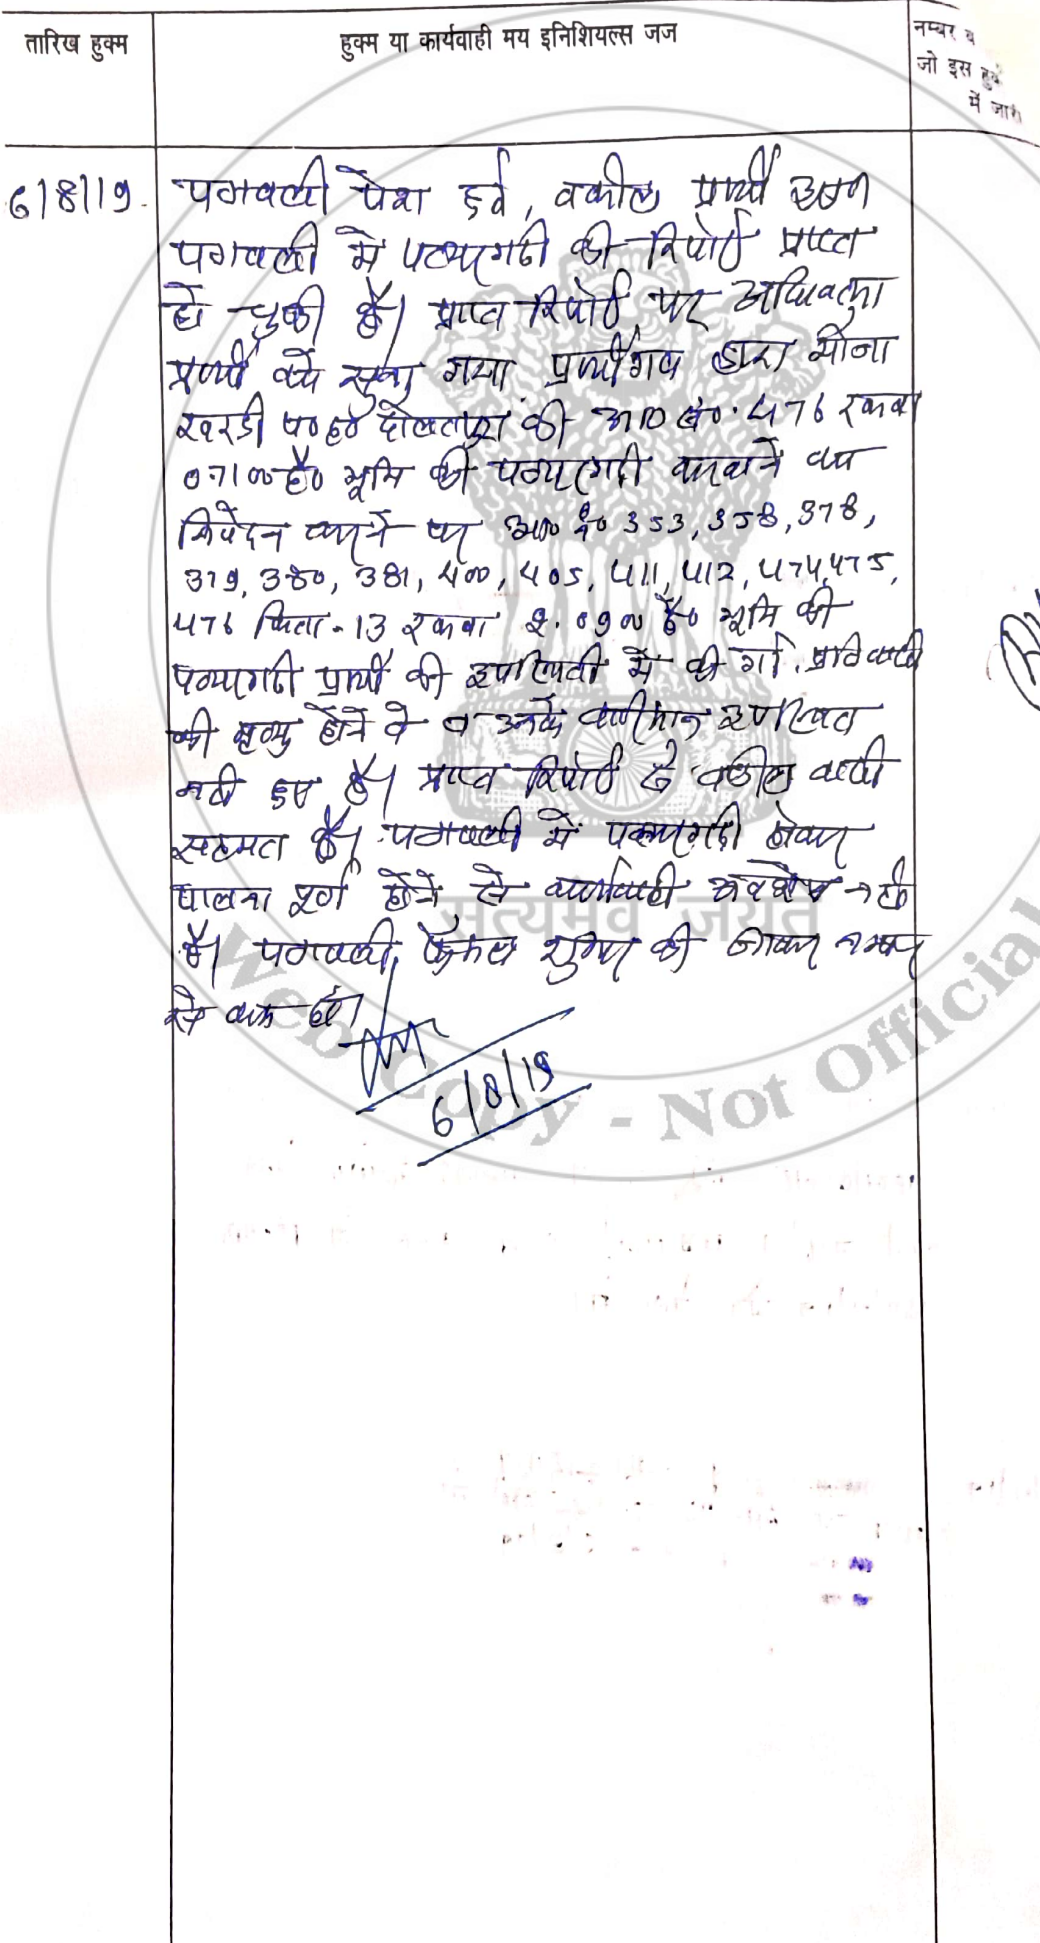 तारिख हुक्म
हुक्म या कार्यवाही मय इनिशियल्स जज
नम्बर व
जो इस हुक्
में जारी
6/8/19.
पत्रावली पेश हुई, वकील प्रार्थी उप०
पत्रावली मे पत्थरगढी की रिपोर्ट प्राप्त
हो चुकी है। प्राप्त रिपोर्ट पर अधिवक्ता
प्रार्थी को सुना गया, प्रार्थीगण द्वारा मौजा
प०ह० दौलतपुरा की आ० नं०. 476 रकबा
0.7100 है० भूमि की पत्थरगढी करवाने का
निवेदन करने पर आ० नं० 353, 358, 378,
379, 380, 381, 400, 405, 411, 412, 474, 475,
476 किता - 13 रकबा 2.0900 है० भूमि की
पत्थरगढी प्रार्थी की उपस्थिती में की गई. प्रतिवादी
की मृत्यु होने से व उनके वारिसान उपस्थित
नही हुए है। प्राप्त रिपोर्ट से वकील वादी
सहमत है। पत्रावली में पत्थरगढी होकर
पालना पूर्ण होने से कार्यवाही अवशेष नही
है। पत्रावली फैसल शुमार की जाकर नम्बर
से कम हो।
6/8/19
सत्यमेव जयते
Web Copy - Not Official